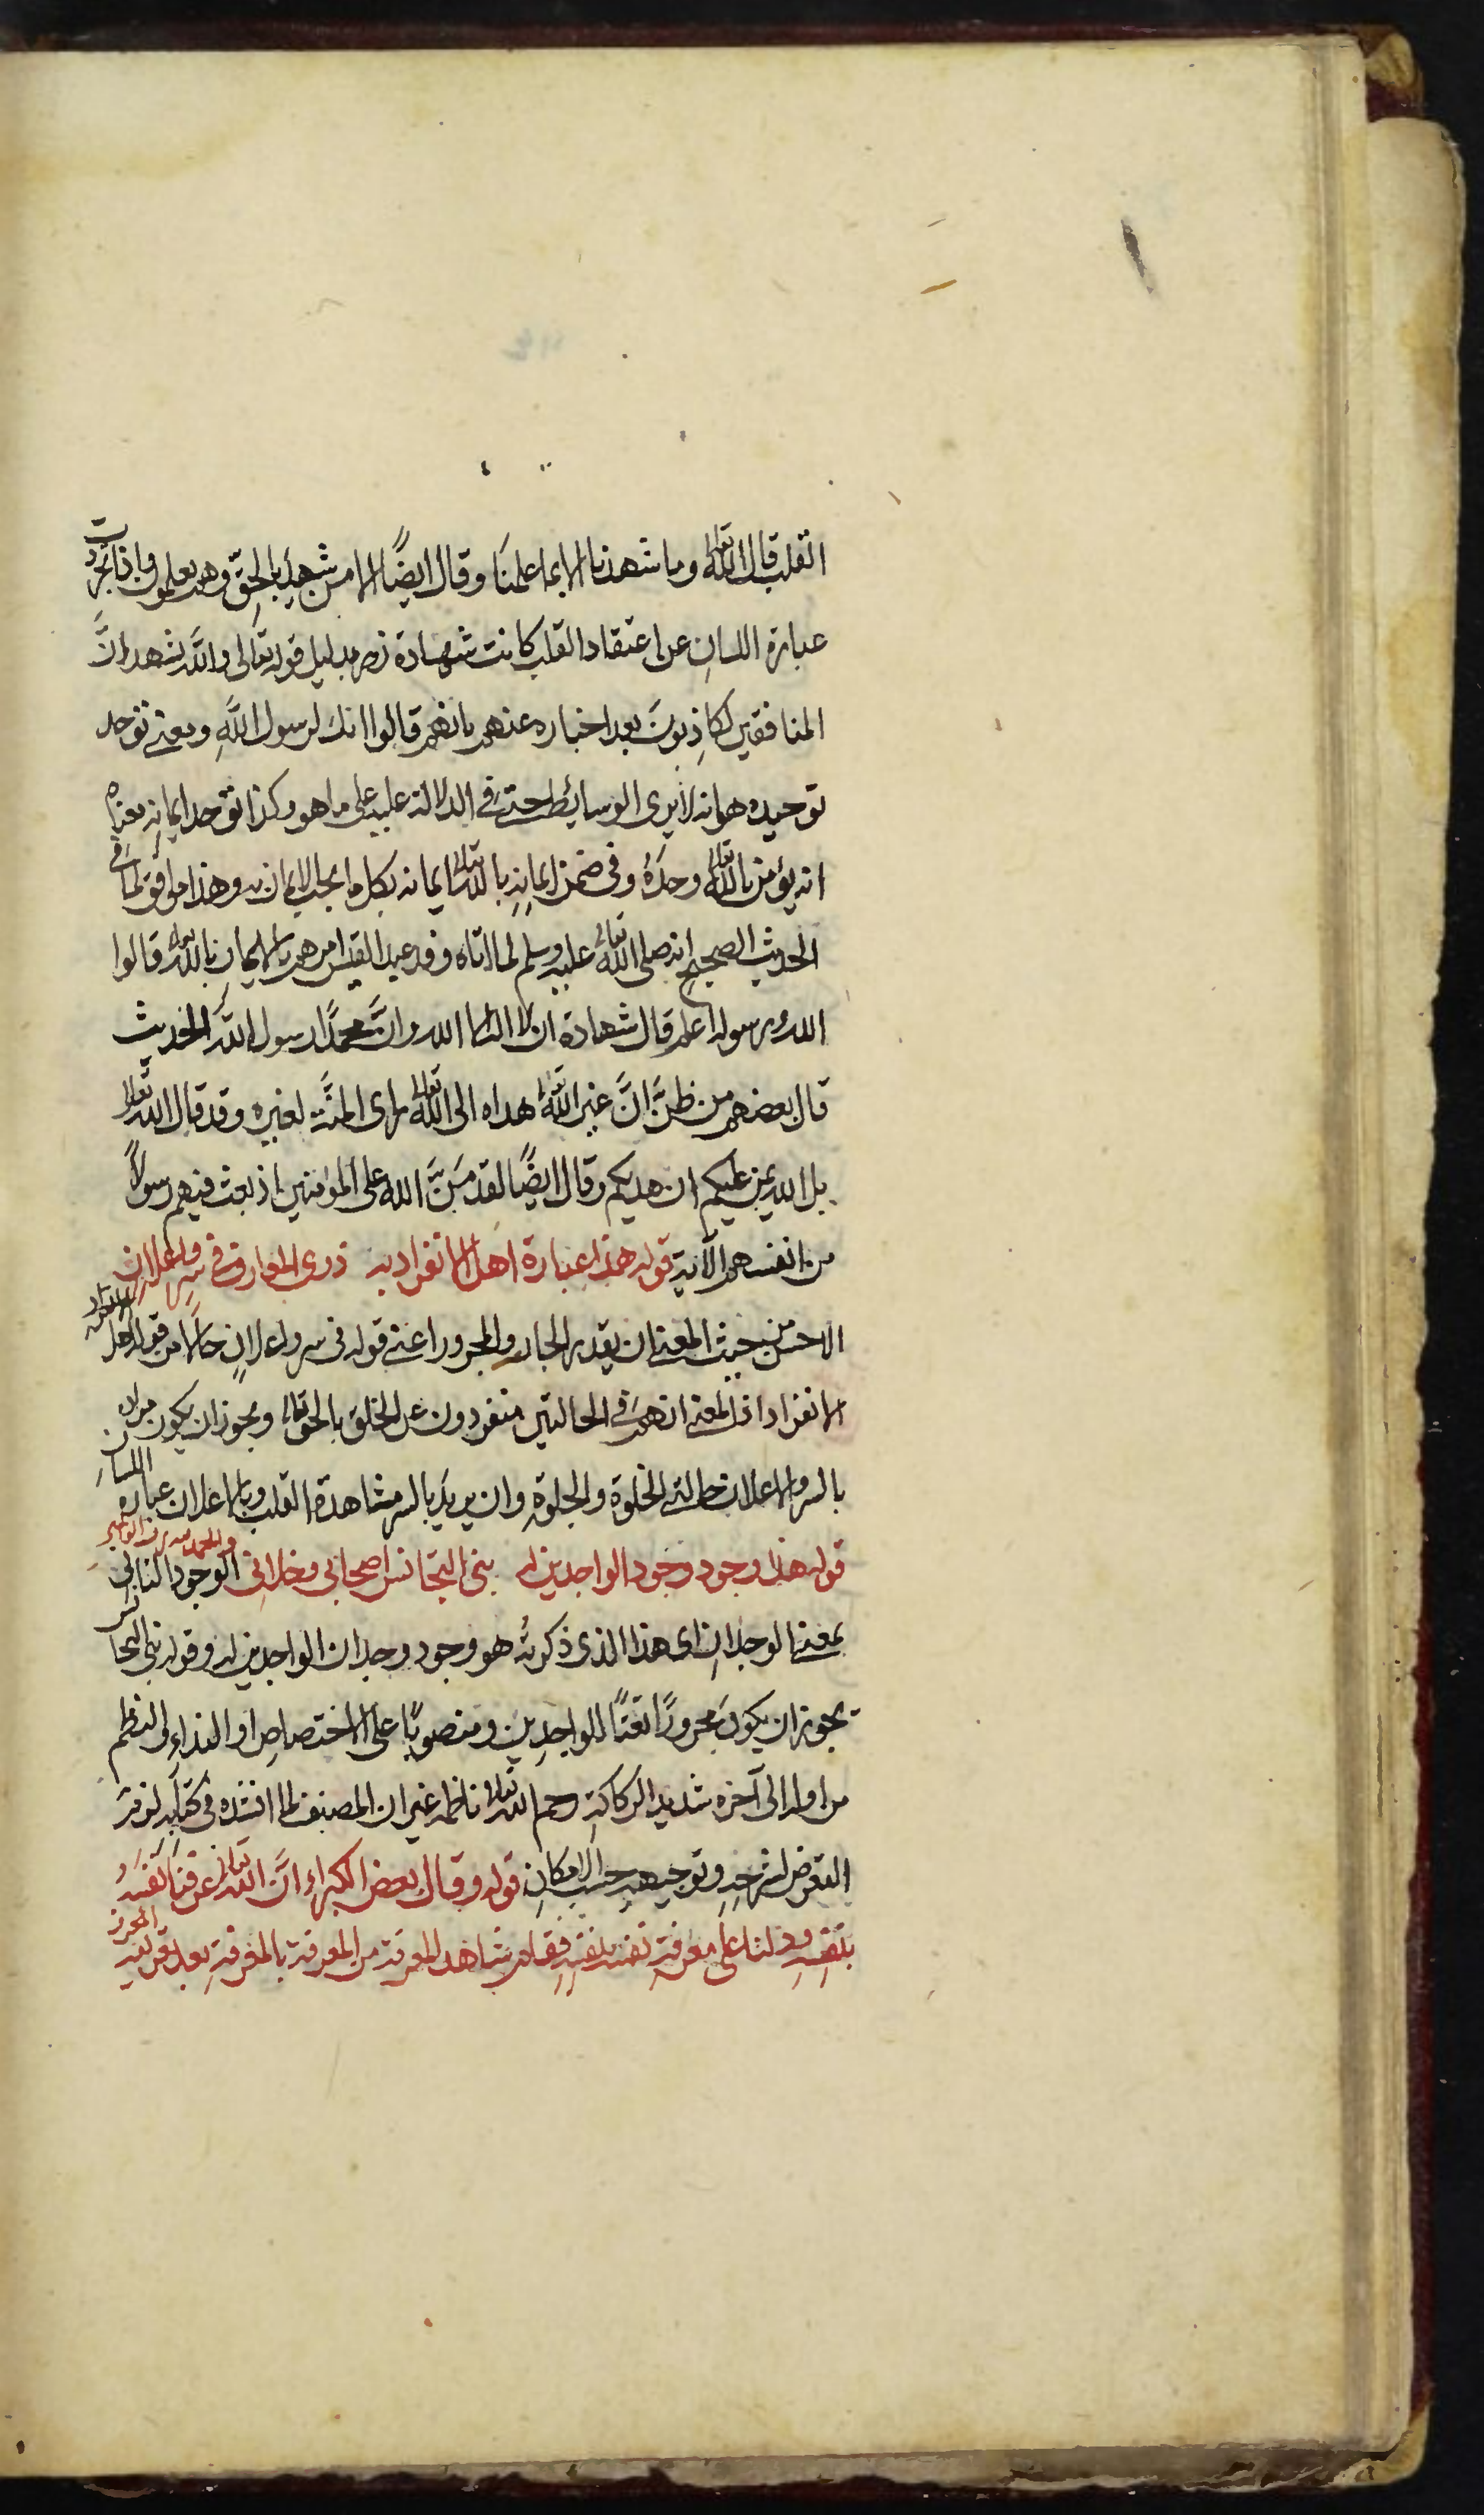 القلب قال الله تعالى وما شهدنا الا بما علمنا وقال ايضًا الا من شهد بالحق وهم يعلمون واذا تجردت
عبارة اللسان عن اعتقاد القلب كانت شهادة زور بدليل قوله تعالى والله يشهد انَّ
المنافقين لكاذبون بعد اخباره عنهم بانهم قالوا انك لرسول اللهِ ومعنى توحد
توحيده هو انه لا يرى الوسائط حتى في الدلالة عليه على ما هو وكذا توحد ايمانه معناه
انه يؤمن بالله تعالى وحدَهُ وفي ضمن ايمانِهِ بالله تعالى ايمانه بكل ما يجب الايمان به وهذا موافق لما في
الحديث الصحيح انه صلى الله تعالى عليه وسلم لما اتاه وفد عبد القيس امرهم بالايمان بالله تعالى قالوا
الله ورسوله اعلم قال شهادة ان لا اله الا الله وانَّ محمدًا رسول الله الحديث
قال بعضهم من ظنَّ انَّ غير الله تعالى هداه الى الله تعالى راى المنَّة لغيره وقد قال الله تعالى
بل الله يمن عليكم ان هديكم وقال ايضًا لقد مَنَّ الله على المؤمنين اذ بعث فيهم رسولاً
من انفسهم الآية قوله هذا عبارة اهل الانفراد به ذوى المعارف في سر واعلان
الاحسن من حيث المعنى ان يقدر الجار والمجرور اعنى قوله في سر واعلانٍ حالا من قوله اهل الانفراد
الانفراد اذ المعنى انهم في الحالتين منفردون عن الخلق بالحق تعالى ويجوز ان يكون مراده
بالسر والاعلان حالتى الخلوة والجلوة وان يريد بالسر مشاهدة القلب وبالاعلان عبارة اللسان
قوله هذا وجود وجود الواجدين له بنى التجانس اصحابى وخلانى الوجود الثانى
بمعنى الوجدان اى هذا الذى ذكرته هو وجود وجدان الواجدين له وقوله بنى التجانس
يجوز ان يكون مجرورًا نعتًا للواجدين ومنصوبًا على الاختصاص او النداء والنظم
من اوله الى آخره شديد الركاكة رحم الله تعالى ناظمه غير ان المصنف لما انشده في كتابه لزم
التعرض لشرحه وتوجيهه حسب الامكان قوله وقال بعض الكبراء انَّ الله تعالى عرفنا نفسَهُ
بنفسه ودلنا على معرفة نفسه بنفسه فقام شاهد المعرفة من المعرفة بالمعرفة بعد تعريف المعرف